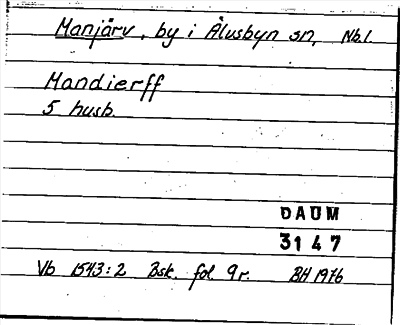 Manjärv, by i Älvsbyn sn, Nb.l.
Mandierff
5 husb.
DAUM
3147
Vb 1543:2 Bsk. fol 9r. BH 1976